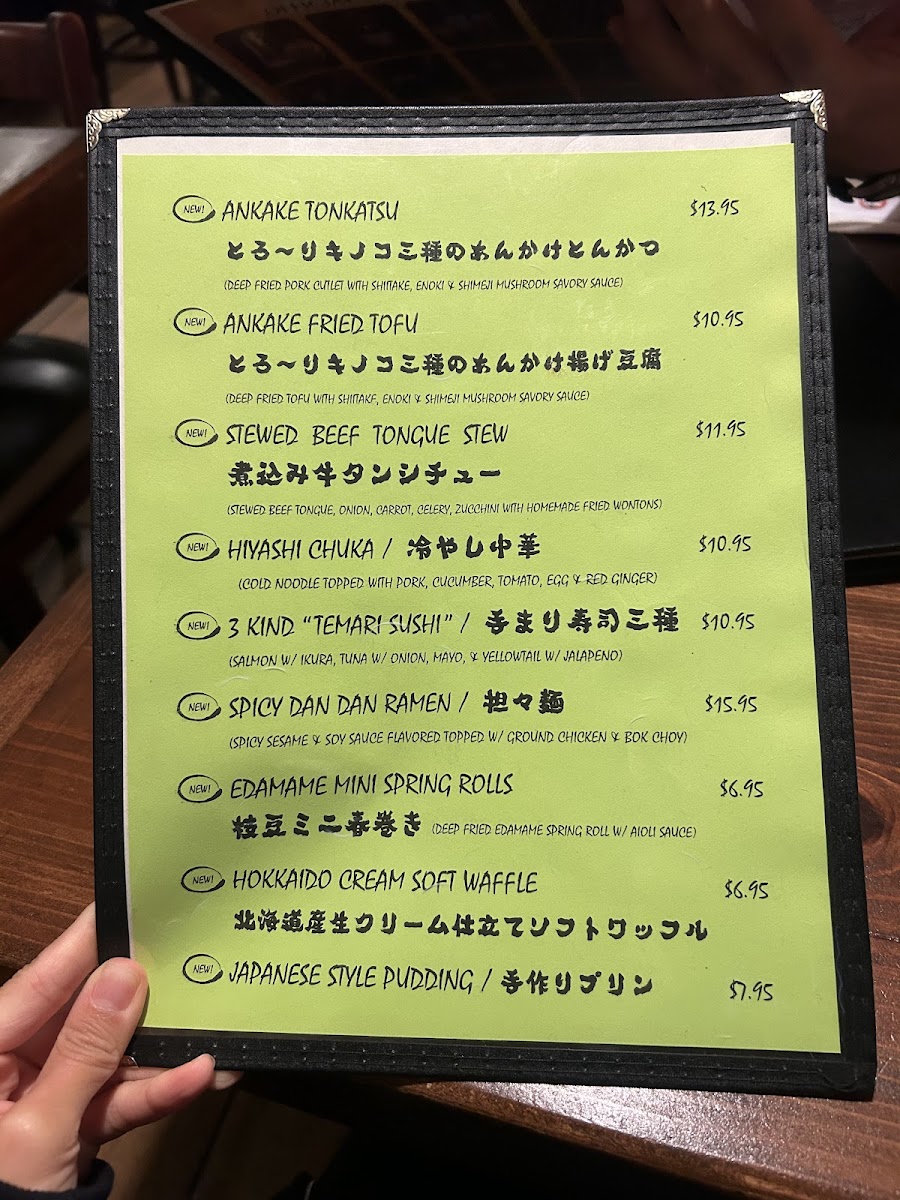 NEW! ANKAKE TONKATSU $13.95
とろ〜りキノコ三種のあんかけとんかつ
(DEEP FRIED PORK CUTLET WITH SHIITAKE, ENOKI & SHIMEJI MUSHROOM SAVORY SAUCE)
NEW! ANKAKE FRIED TOFU $10.95
とろ〜りキノコ三種のあんかけ揚げ豆腐
(DEEP FRIED TOFU WITH SHIITAKE, ENOKI & SHIMEJI MUSHROOM SAVORY SAUCE)
NEW! STEWED BEEF TONGUE STEW $11.95
煮込み牛タンシチュー
(STEWED BEEF TONGUE, ONION, CARROT, CELERY, ZUCCHINI WITH HOMEMADE FRIED WONTONS)
NEW! HIYASHI CHUKA / 冷やし中華 $10.95
(COLD NOODLE TOPPED WITH PORK, CUCUMBER, TOMATO, EGG & RED GINGER)
NEW! 3 KIND "TEMARI SUSHI" / 手まり寿司三種 $10.95
(SALMON W/ IKURA, TUNA W/ ONION, MAYO, & YELLOWTAIL W/ JALAPENO)
NEW! SPICY DAN DAN RAMEN / 担々麺 $15.95
(SPICY SESAME & SOY SAUCE FLAVORED TOPPED W/ GROUND CHICKEN & BOK CHOY)
NEW! EDAMAME MINI SPRING ROLLS $6.95
枝豆ミニ春巻き (DEEP FRIED EDAMAME SPRING ROLL W/ AIOLI SAUCE)
NEW! HOKKAIDO CREAM SOFT WAFFLE $6.95
北海道産生クリーム仕立てソフトワッフル
NEW! JAPANESE STYLE PUDDING / 手作りプリン $7.95